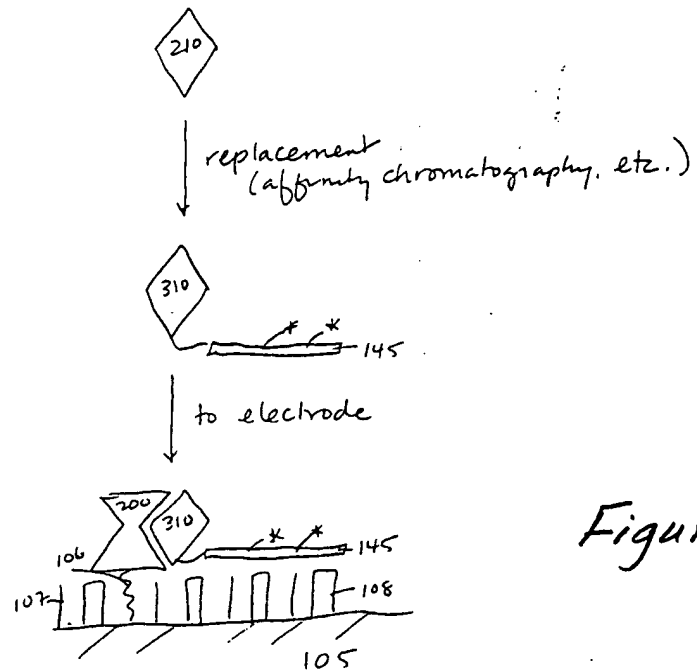 210
replacement
(affinity chromatography, etc.)
310
* *
145
to electrode
200
310
* *
106
145
107
108
105
Figur